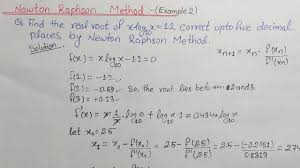 Newton Raphson Method - (Example 2)
Q! Find the real root of x log₁₀ x = 1.2 correct upto five decimal
places by Newton Raphson Method.
Solution
xₙ₊₁ = xₙ - f(xₙ)/f'(xₙ)
f(x) = x log₁₀ x - 1.2 = 0
f(1) = -1.2
f(2) = -0.59. So, the root lies between 2 and 3
f(3) = +0.23
f'(x) = x · 1/x log₁₀ e + log₁₀ x = 0.4343 + log₁₀ x
let x₀ = 2.5
x₁ = x₀ - f(x₀)/f'(x₀) = 2.5 - f(2.5)/f'(2.5) = 2.5 - (-0.2051)/0.8322 = 2.74